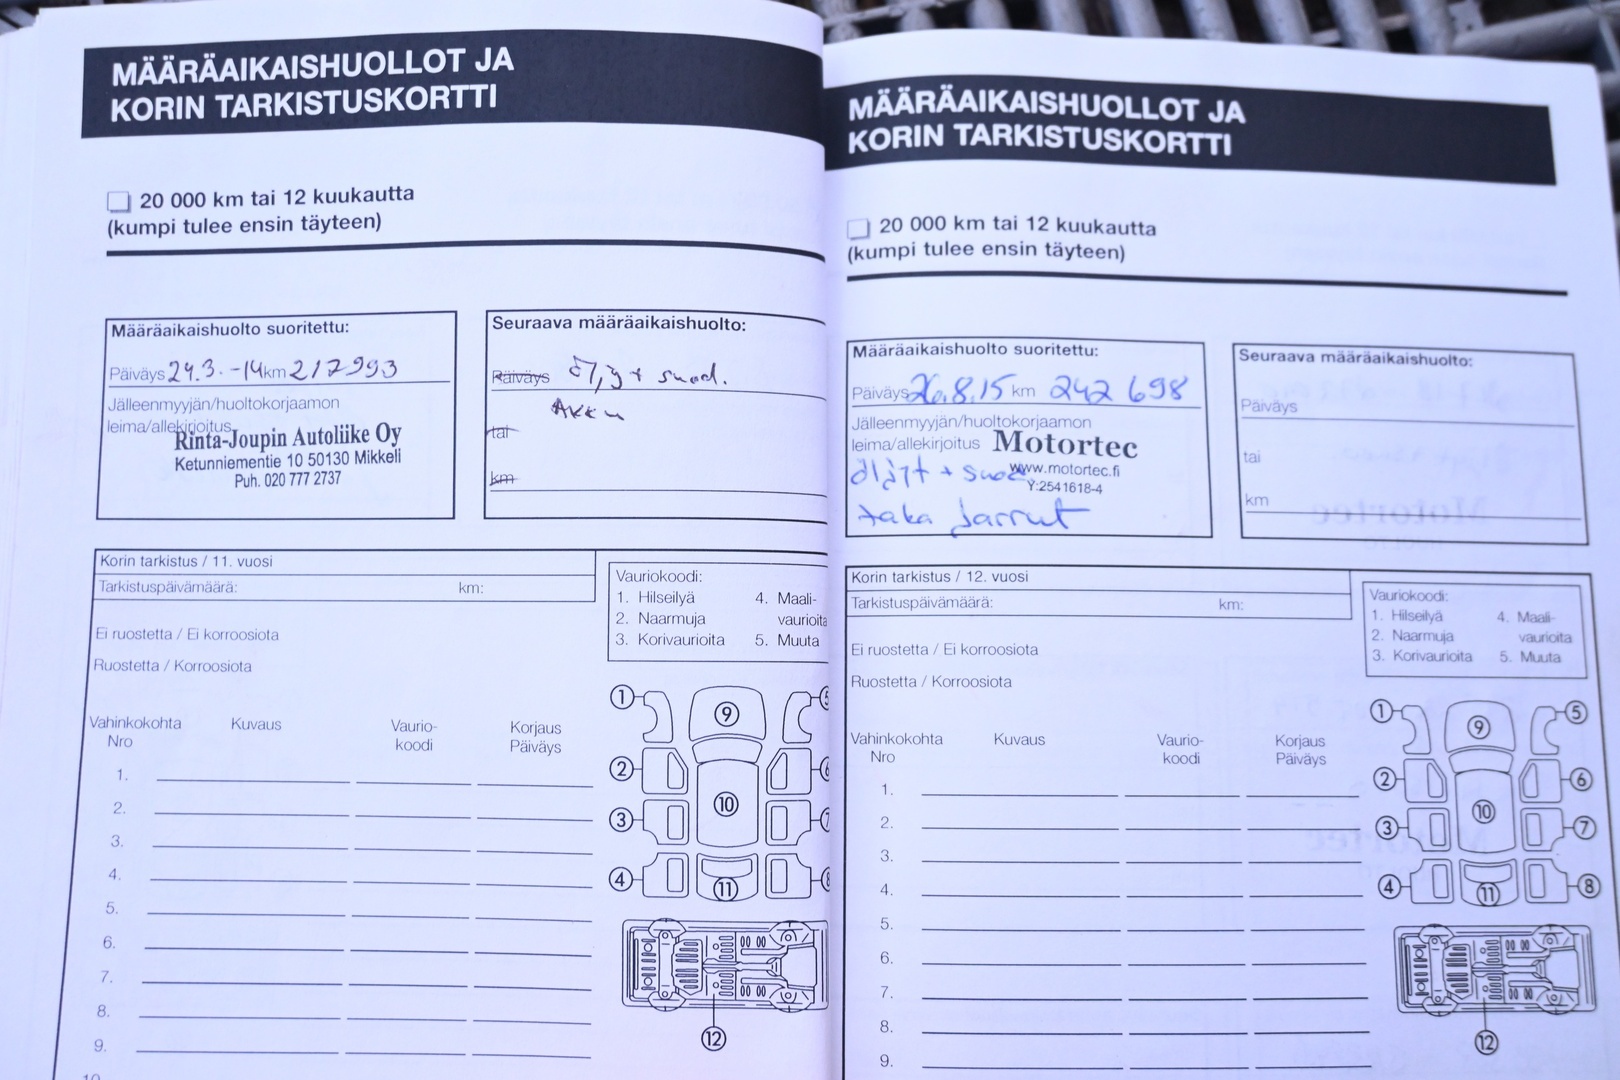 MÄÄRÄAIKAISHUOLLOT JA
KORIN TARKISTUSKORTTI
20 000 km tai 12 kuukautta
(kumpi tulee ensin täyteen)
Määräaikaishuolto suoritettu:
Päiväys 24.3.-14 km 217993
Jälleenmyyjän/huoltokorjaamon
leima/allekirjoitus
Rinta-Joupin Autoliike Oy
Ketunniementie 10 50130 Mikkeli
Puh. 020 777 2737
Seuraava määräaikaishuolto:
Päiväys + suod.
Akku
tai
km
Korin tarkistus / 11. vuosi
Tarkistuspäivämäärä: km:
Ei ruostetta / Ei korroosiota
Ruostetta / Korroosiota
Vauriokoodi:
1. Hilseilyä 4. Maali-
2. Naarmuja vaurioita
3. Korivaurioita 5. Muuta
Vahinkokohta Kuvaus Vaurio- Korjaus
Nro koodi Päiväys
1.
2.
3.
4.
5.
6.
7.
8.
9.
10
1
2
3
4
5
6
7
8
9
10
11
12
MÄÄRÄAIKAISHUOLLOT JA
KORIN TARKISTUSKORTTI
20 000 km tai 12 kuukautta
(kumpi tulee ensin täyteen)
Määräaikaishuolto suoritettu:
Päiväys 26.8.15 km 242 698
Jälleenmyyjän/huoltokorjaamon
leima/allekirjoitus Motortec
www.motortec.fi
Y:2541618-4
öljyt + suod
taka jarrut
Seuraava määräaikaishuolto:
Päiväys
tai
km
Korin tarkistus / 12. vuosi
Tarkistuspäivämäärä: km:
Ei ruostetta / Ei korroosiota
Ruostetta / Korroosiota
Vauriokoodi:
1. Hilseilyä 4. Maali-
2. Naarmuja vaurioita
3. Korivaurioita 5. Muuta
Vahinkokohta Kuvaus Vaurio- Korjaus
Nro koodi Päiväys
1.
2.
3.
4.
5.
6.
7.
8.
9.
1
2
3
4
5
6
7
8
9
10
11
12